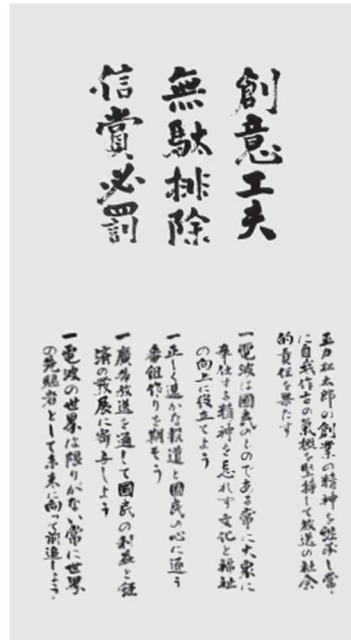 創意工夫
無駄排除
信賞必罰
正力松太郎の創業の精神を継承し常
に自我作古の氣概を堅持して放送の社会
的責任を果たす
一電波は國民のものである常に大衆に
奉仕する精神を忘れず文化と福祉
の向上に役立てよう
一正しく速かな報道と國民の心に適う
番組作りを期そう
一廣告放送を通じて國民の利益と経
済の発展に寄与しよう
一電波の世界は限りがない常に世界
の先駆者として未来に向って前進しよう